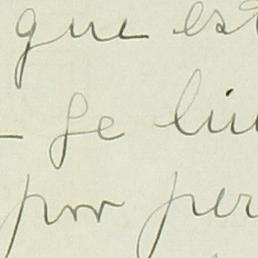 que est
- se lin
por per